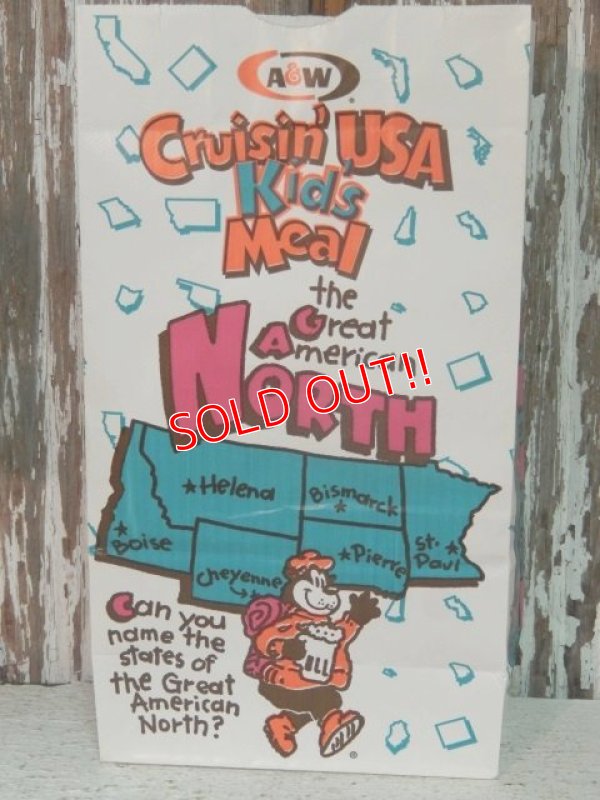 A&W
®
Cruisin' USA
Kid's
Meal
the
Great
American
NORTH
SOLD OUT!!
Helena
Bismarck
Boise
Pierre
St.
Paul
Cheyenne
Can you
name the
states of
the Great
American
North?
®